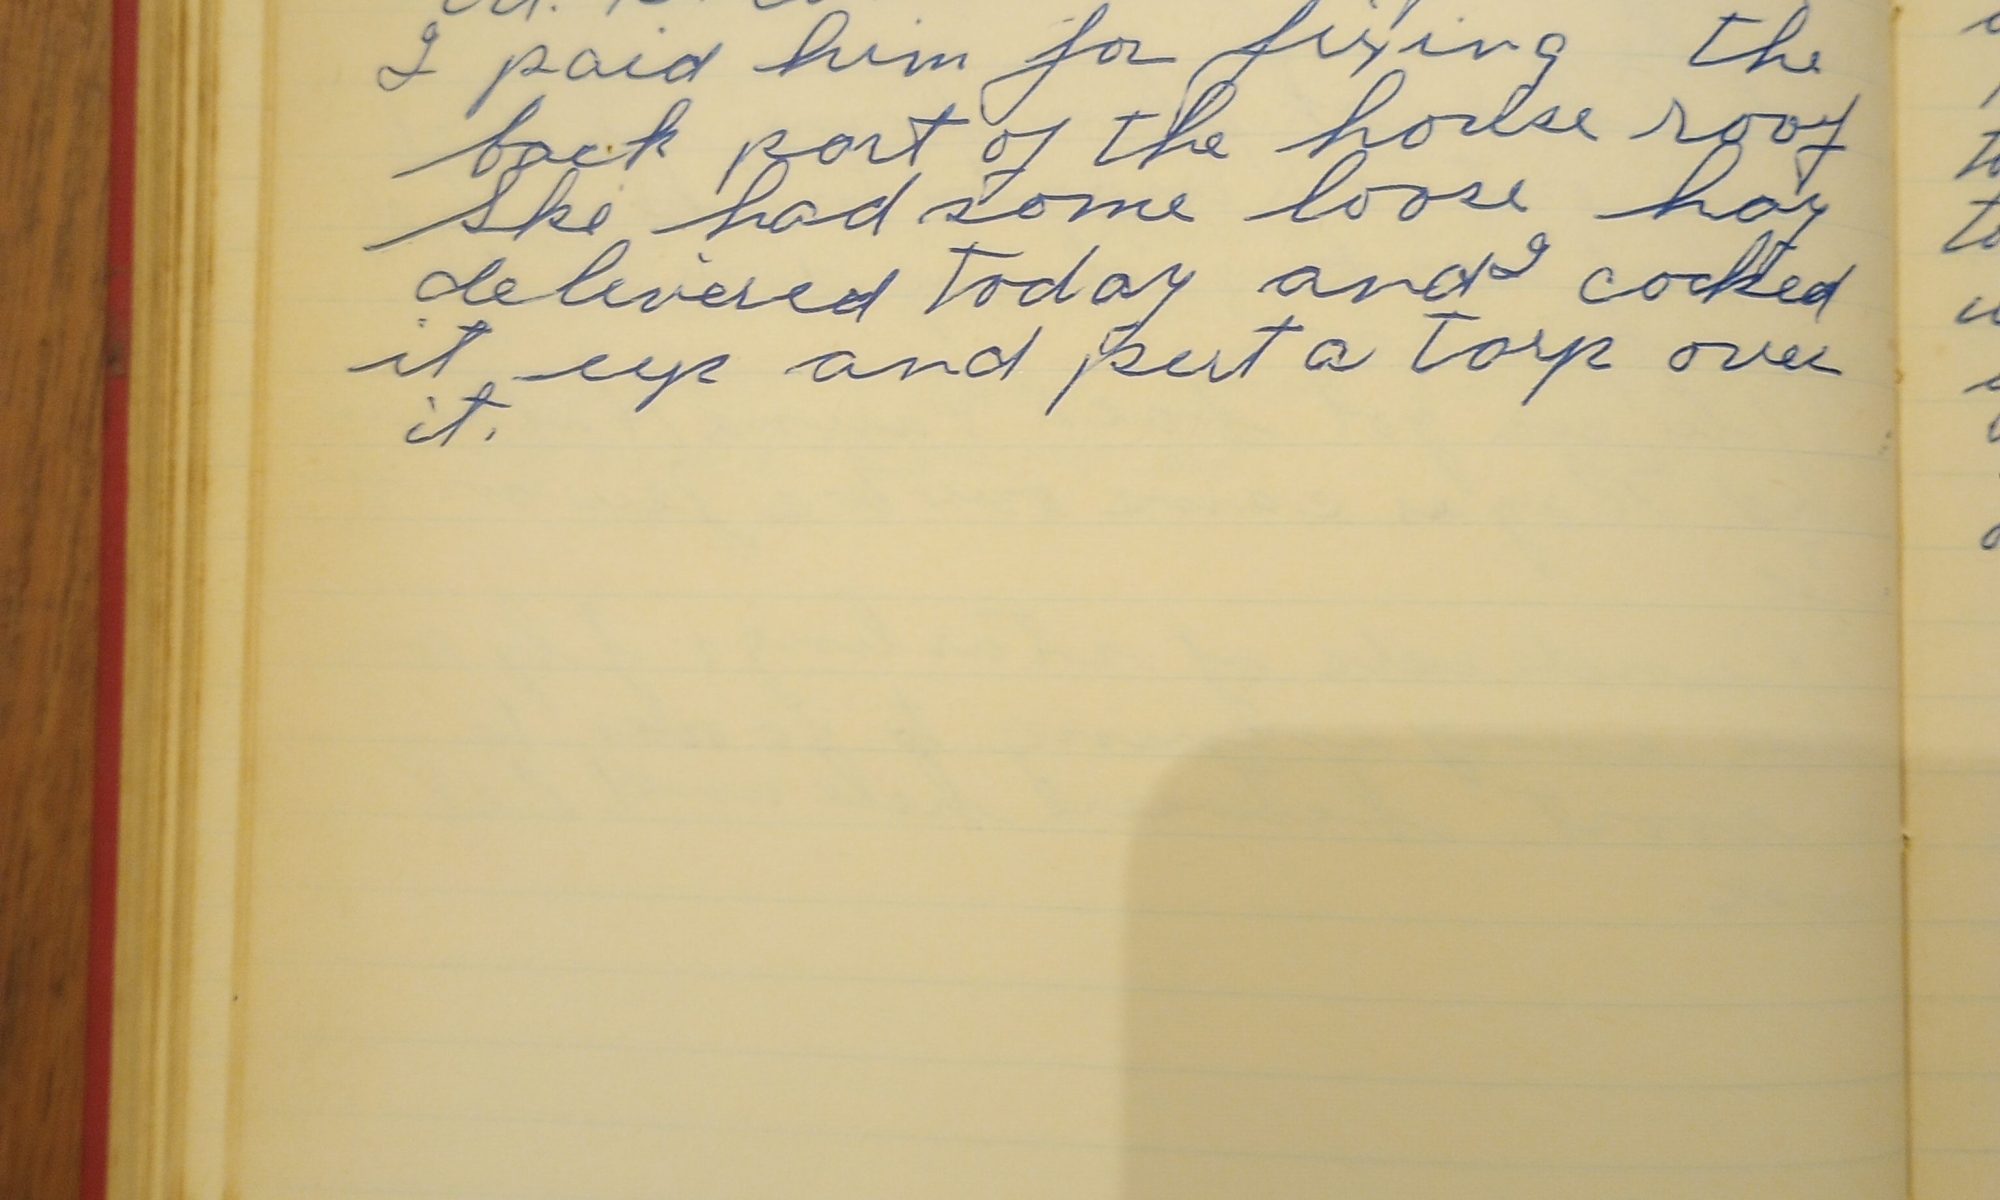 I paid him for fixing the
back part of the house roof
She had some loose hay
delivered today and I cocked
it up and put a tarp over
it.